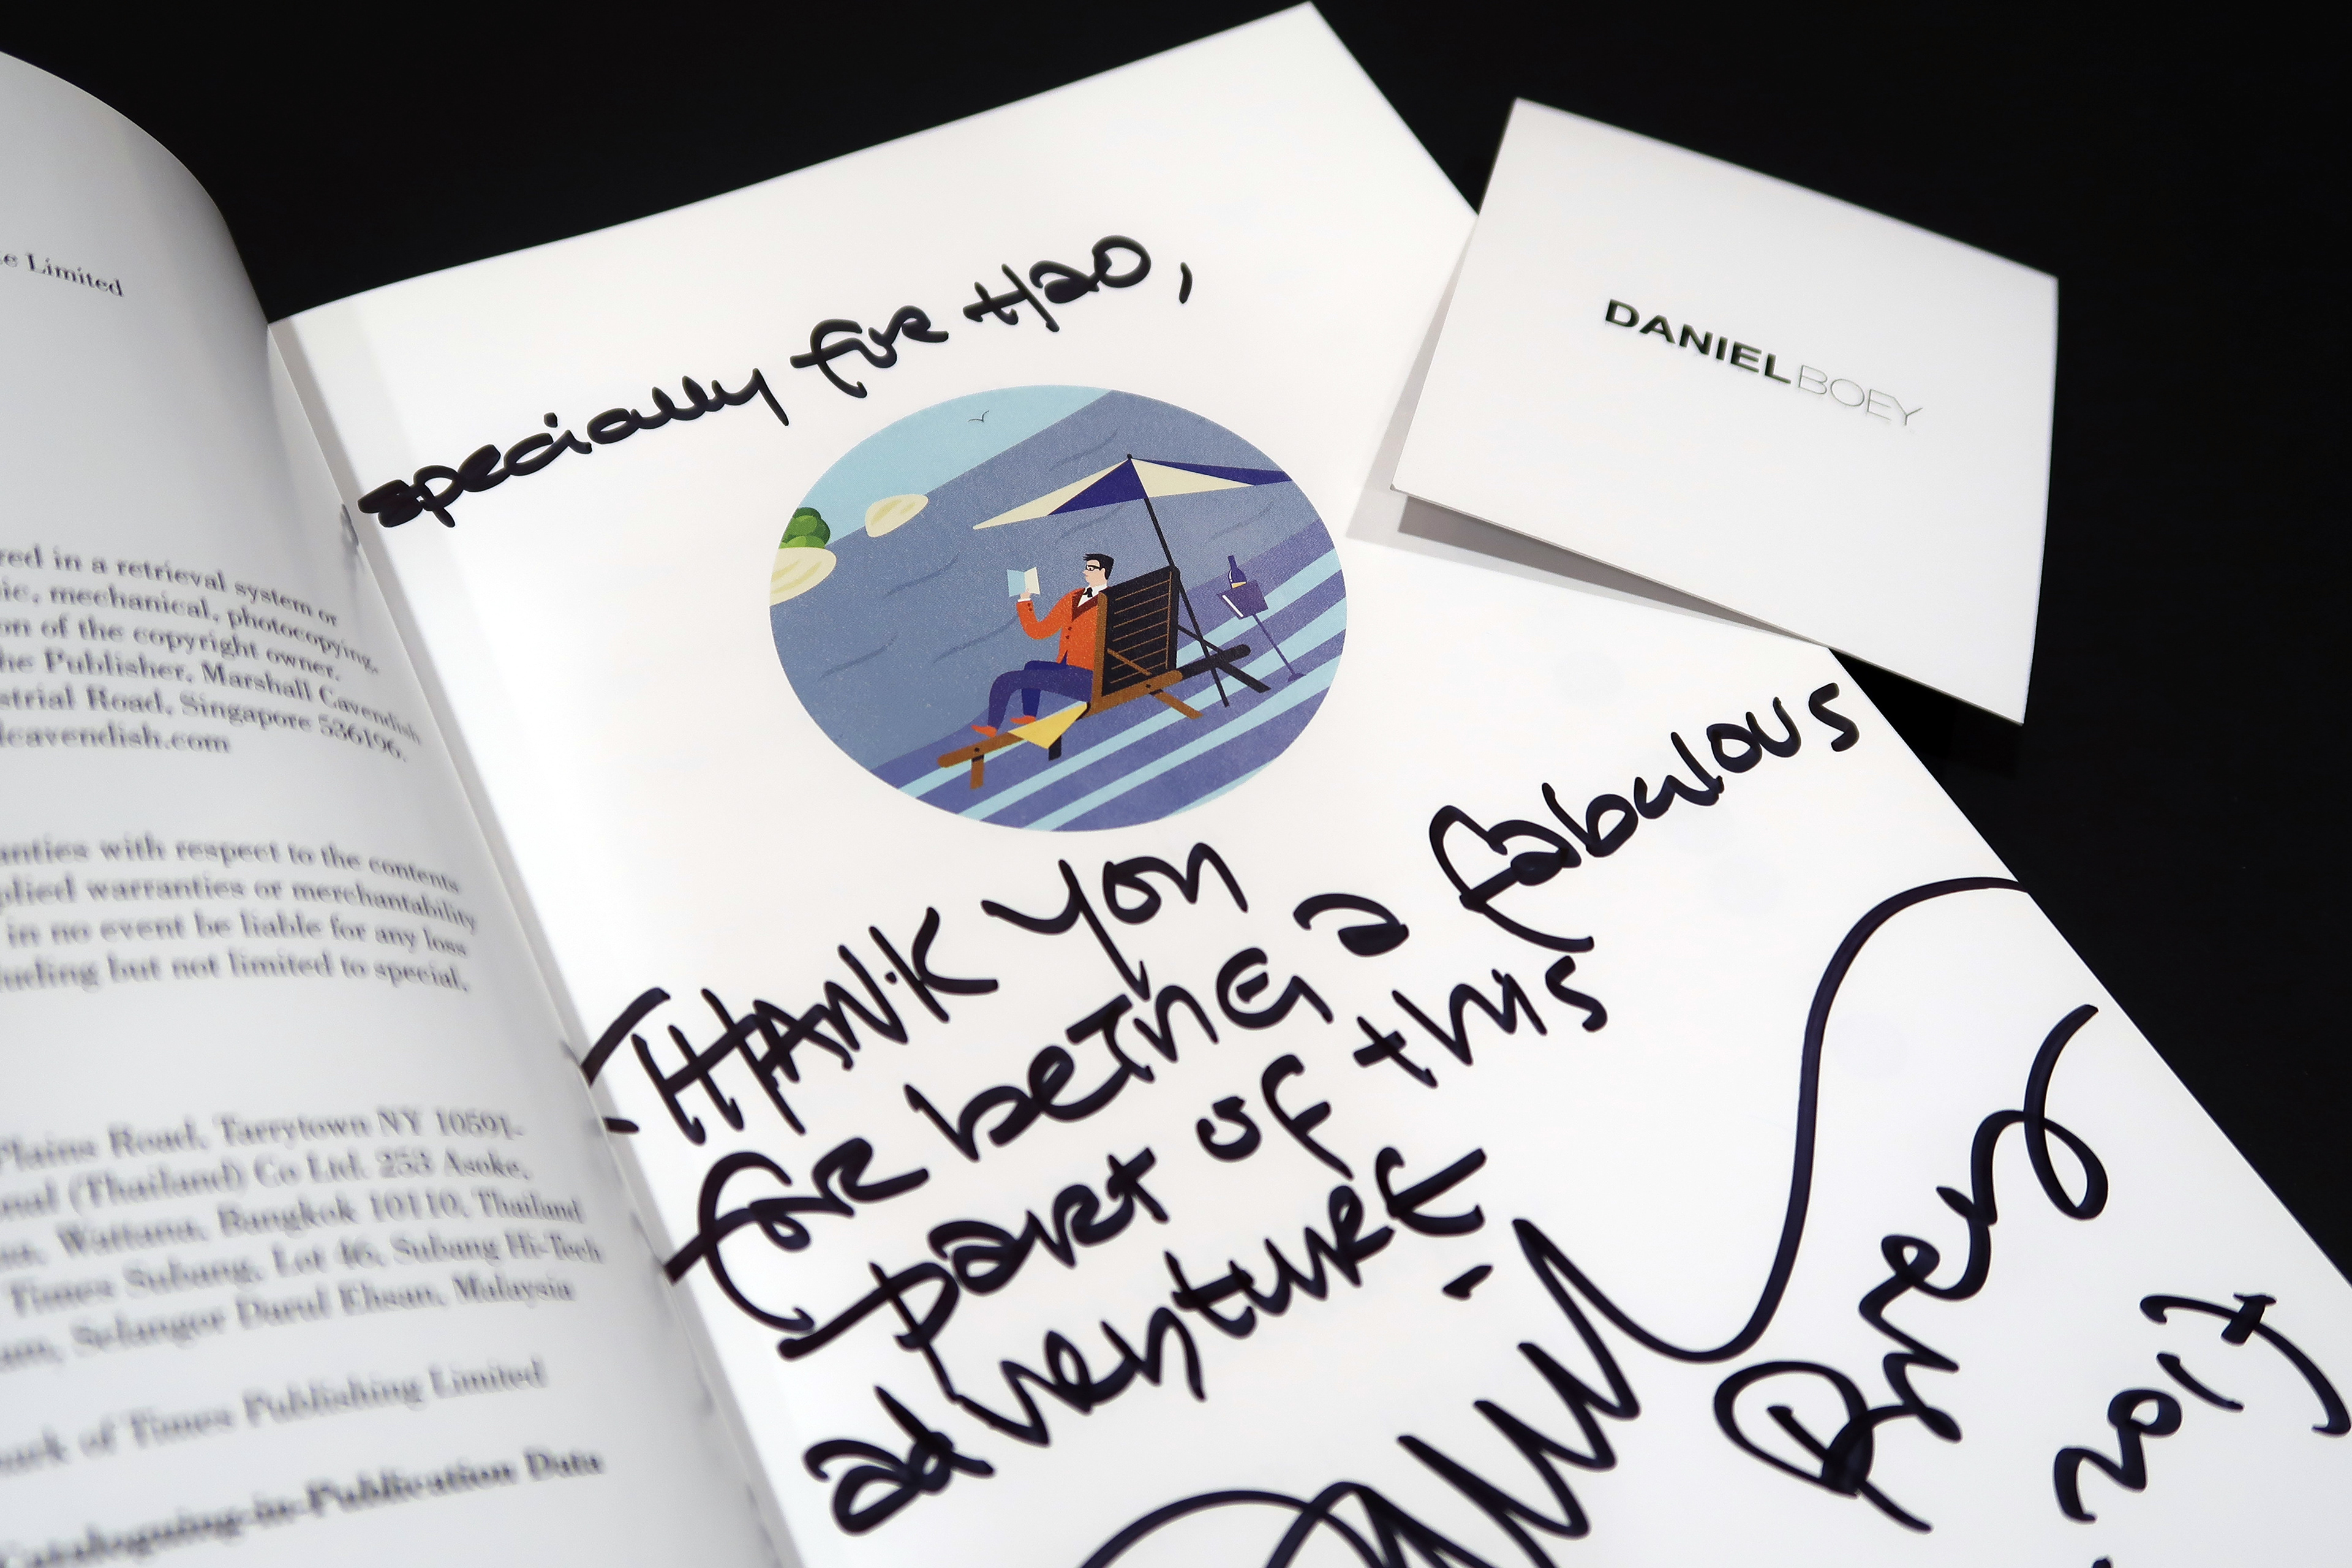 e Limited
red in a retrieval system or
ic, mechanical, photocopying,
on of the copyright owner.
he Publisher, Marshall Cavendish
strial Road, Singapore 536196.
lcavendish.com
anties with respect to the contents
plied warranties or merchantability
in no event be liable for any loss
luding but not limited to special,
Plains Road, Tarrytown NY 10591-
onal (Thailand) Co Ltd. 253 Asoke,
Wattana, Bangkok 10110, Thailand
Times Subang, Lot 46, Subang Hi-Tech
am, Selangor Darul Ehsan, Malaysia
mark of Times Publishing Limited
Cataloguing-in-Publication Data
specially for
THANK you
for being a fabulous
part of this
adventure.
2017
DANIELBOEY